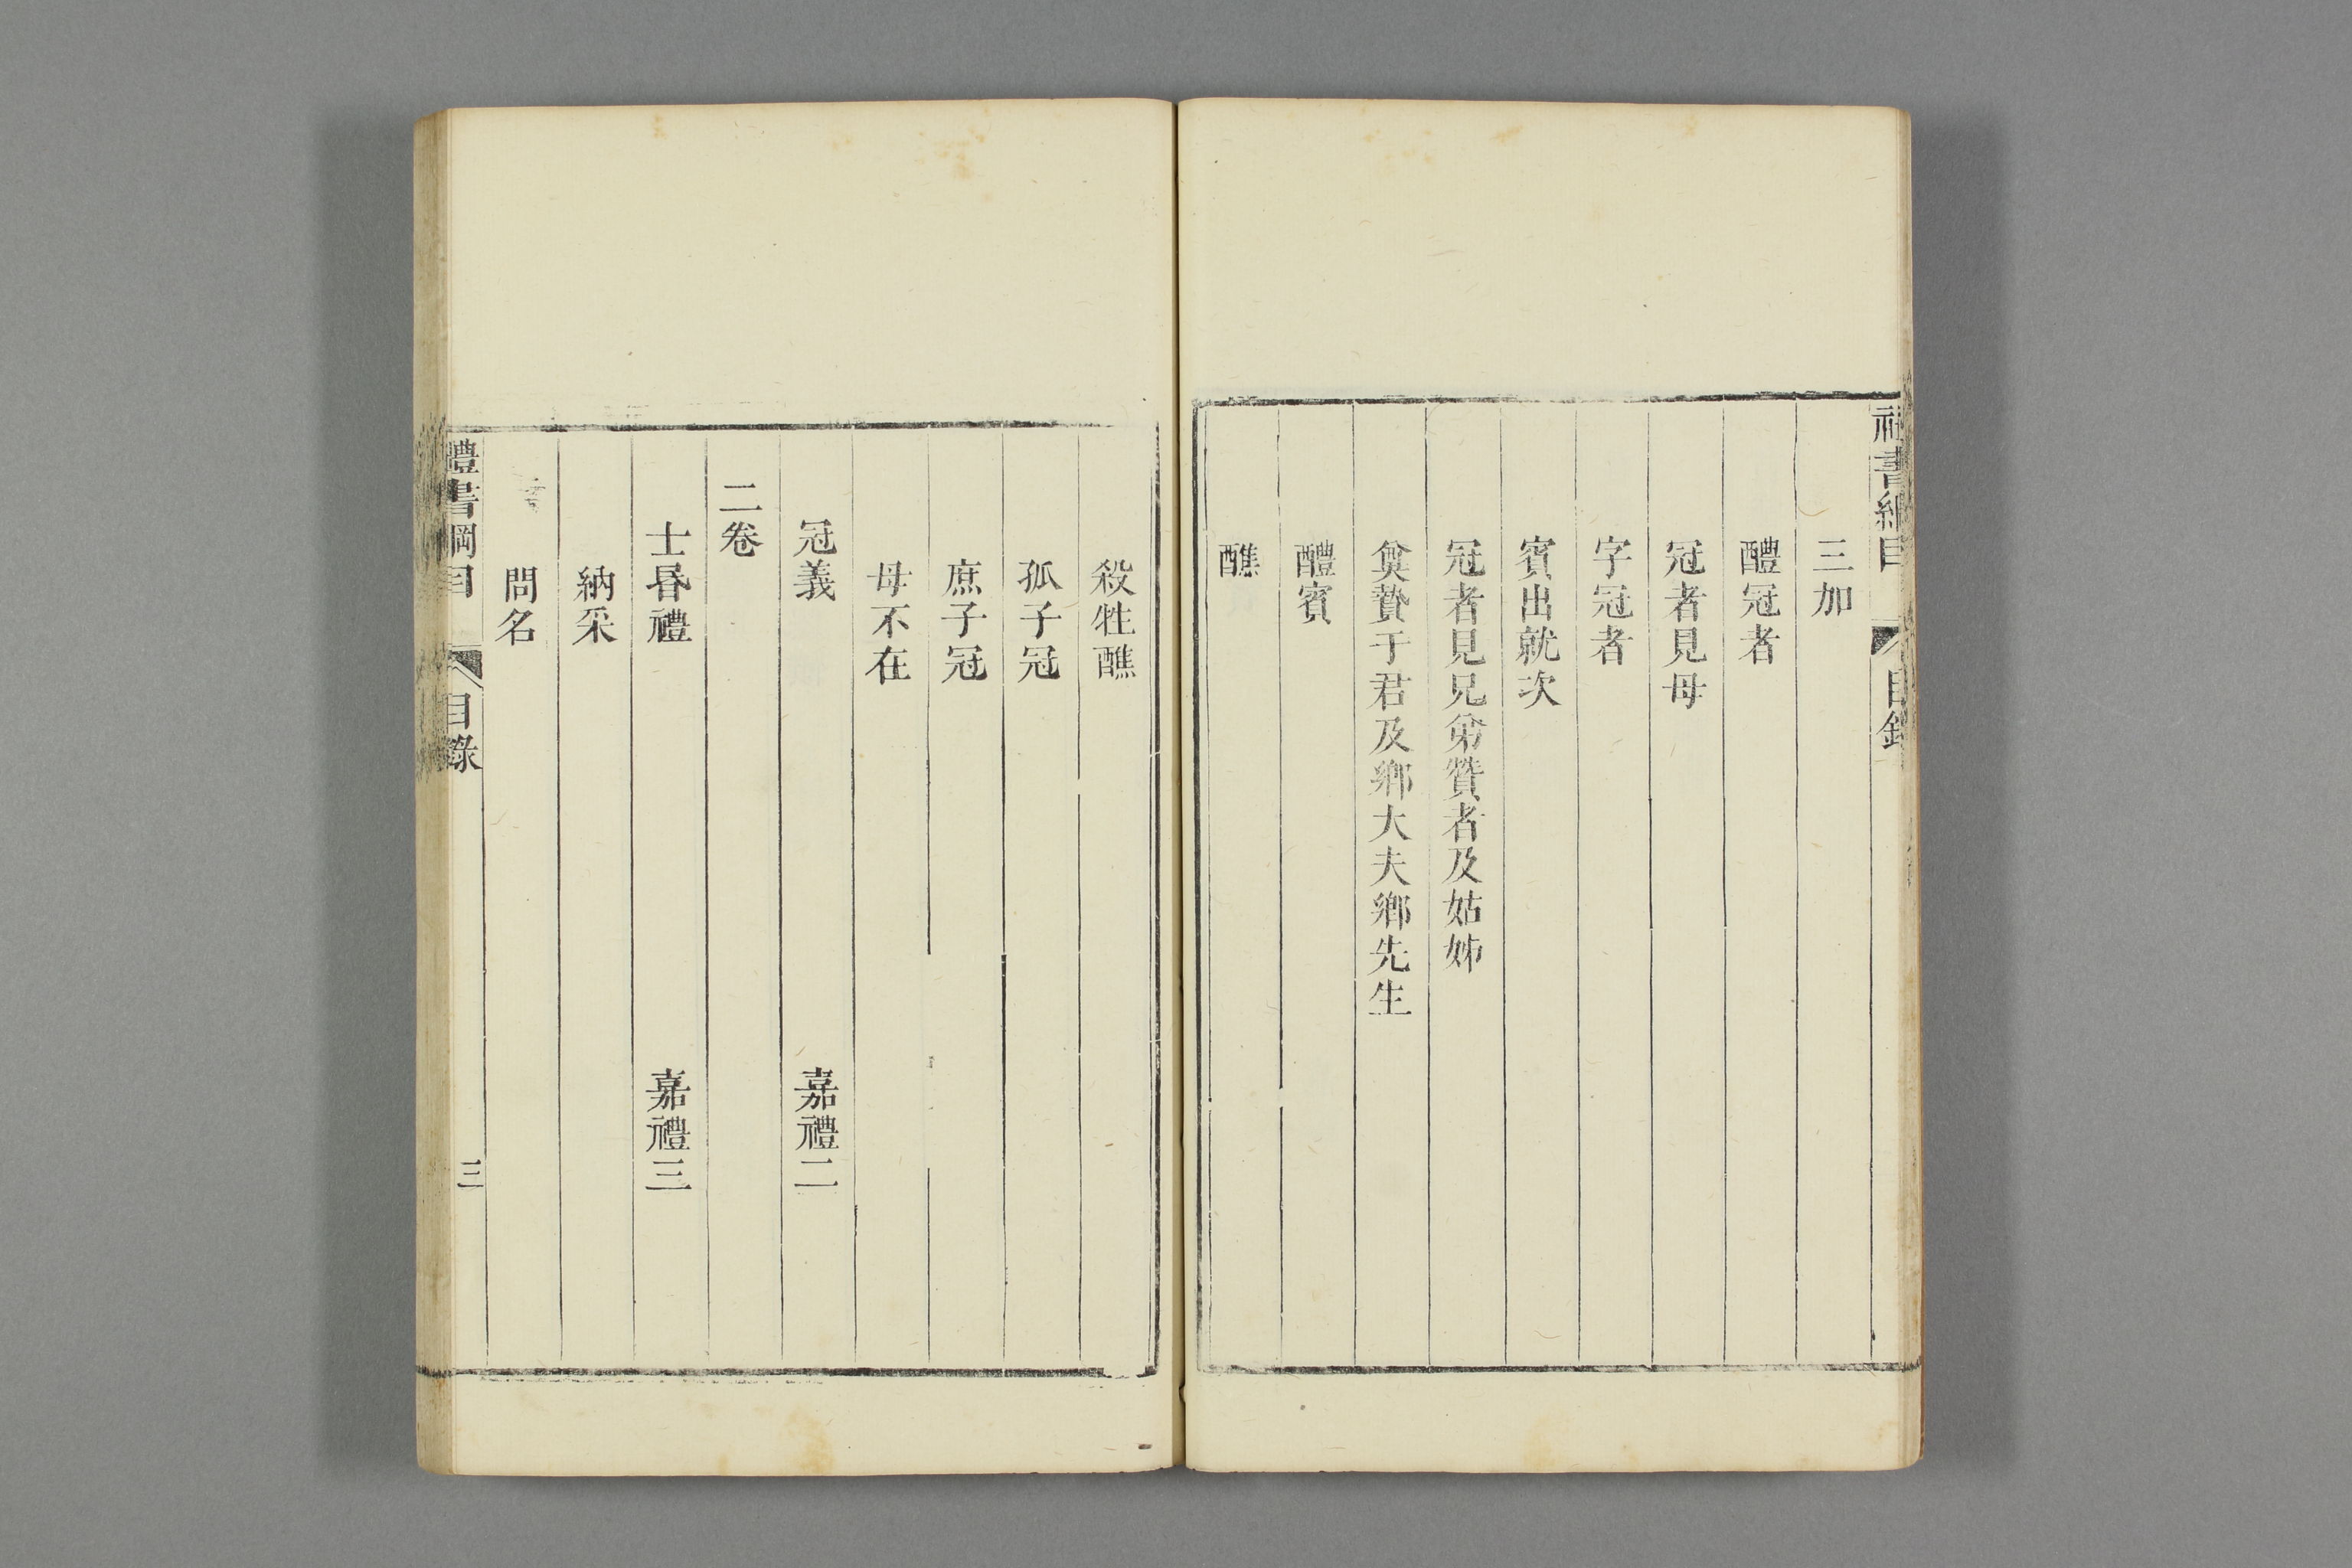 禮書綱目 目錄
三加
醴冠者
冠者見母
字冠者
賓出就次
冠者見兄弟贊者及姑姊
奠贄于君及鄉大夫鄉先生
醴賓
醮
殺牲醮
孤子冠
庶子冠
母不在
冠義 嘉禮二
二卷
士昏禮 嘉禮三
納采
問名
禮書綱目 目錄 三